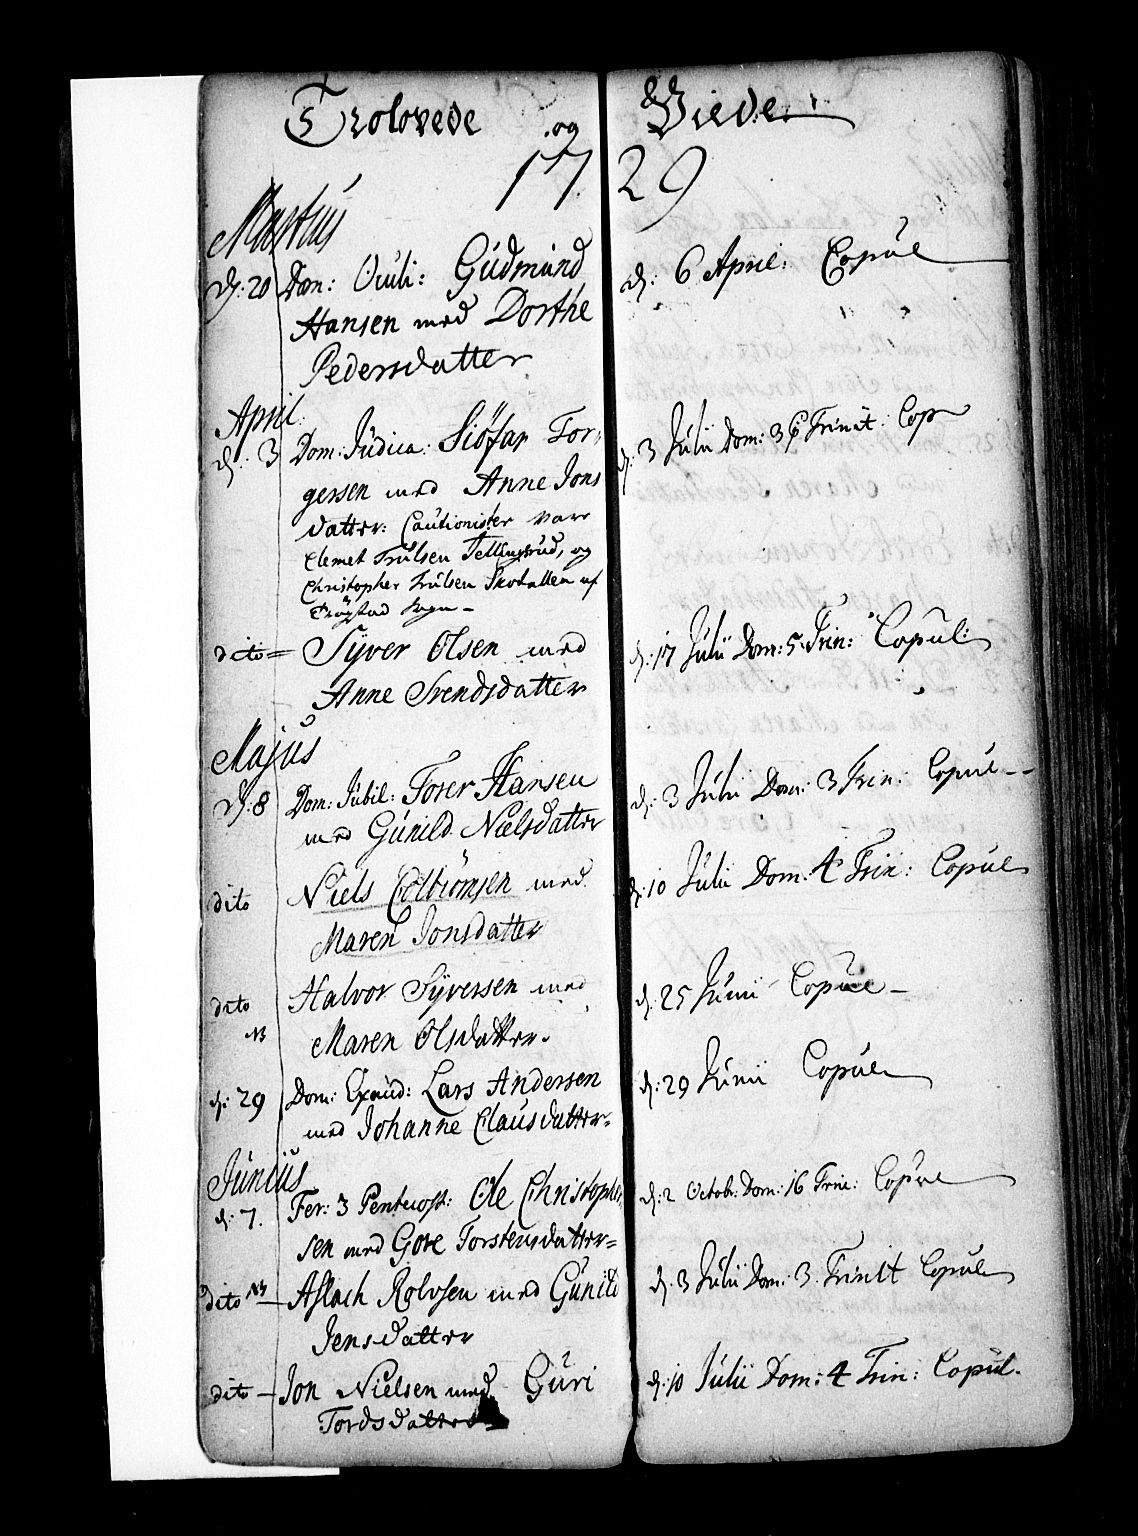 Trolovede og Viede
1729
Martius
d: 20 Dom: Oculi: Gudmund
Hansen med Dorthe
Pedersdatter
d: 6 April: Copul
April:
d: 3 Dom: Judica: Siöfar Tor-
gersen med Anne Jons
datter: Cautionister var
Clemet Trulsen Tellingsrud, og
Christopher Trulsen Skotallen af
Trögstad Sogn -
d: 3 Julii Dom: 3 p Trinit: Cop
dito = Syver Olsen med
Anne Svendsdatter
d: 17 Julii Dom: 5 Trin: Copul:
Majus
d: 8 Dom: Jubil: Torer Hansen
med Gunild Nielsdatter
d: 3 Julii Dom: 3 Trin: Copul - -
dito Niels Colbiömsen med
Maren Jonsdatter
d: 10 Julii Dom: 4 Trin: Copul
dito Halvor Syversen med
NB Maren Olsdatter.
d: 25 Junii Copul -
d: 29 Dom: Exaud: Lars Andersen
med Johanne Clausdatter =
d: 29 Junii Copul
Junius
d: 7. Fer: 3 Pentecost: Ole Christopher
sen med Gore Torstensdatter =
d: 2 Octob: Dom: 16 Trin: Copul
dito NB - Aslach Rolvsen med Gunild
Jensdatter
d: 3 Julii Dom: 3 Trinit Copul
dito - Jon Nielsen med Guri
Tordsdatter
d: 10 Julii Dom: 4 Trin: Copul.